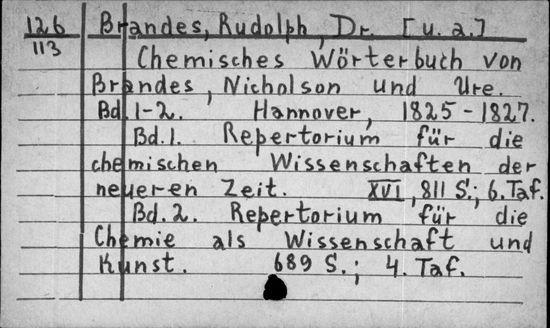 126 Brandes, Rudolph, Dr. [u. a.]
113
Chemisches Wörterbuch von
Brandes, Nicholson und Ure.
Bd. 1-2. Hannover, 1825-1827.
Bd. 1. Repertorium für die
chemischen Wissenschaften der
neueren Zeit. XVI, 811 S.; 6. Taf.
Bd. 2. Repertorium für die
Chemie als Wissenschaft und
Kunst. 689 S.; 4. Taf.